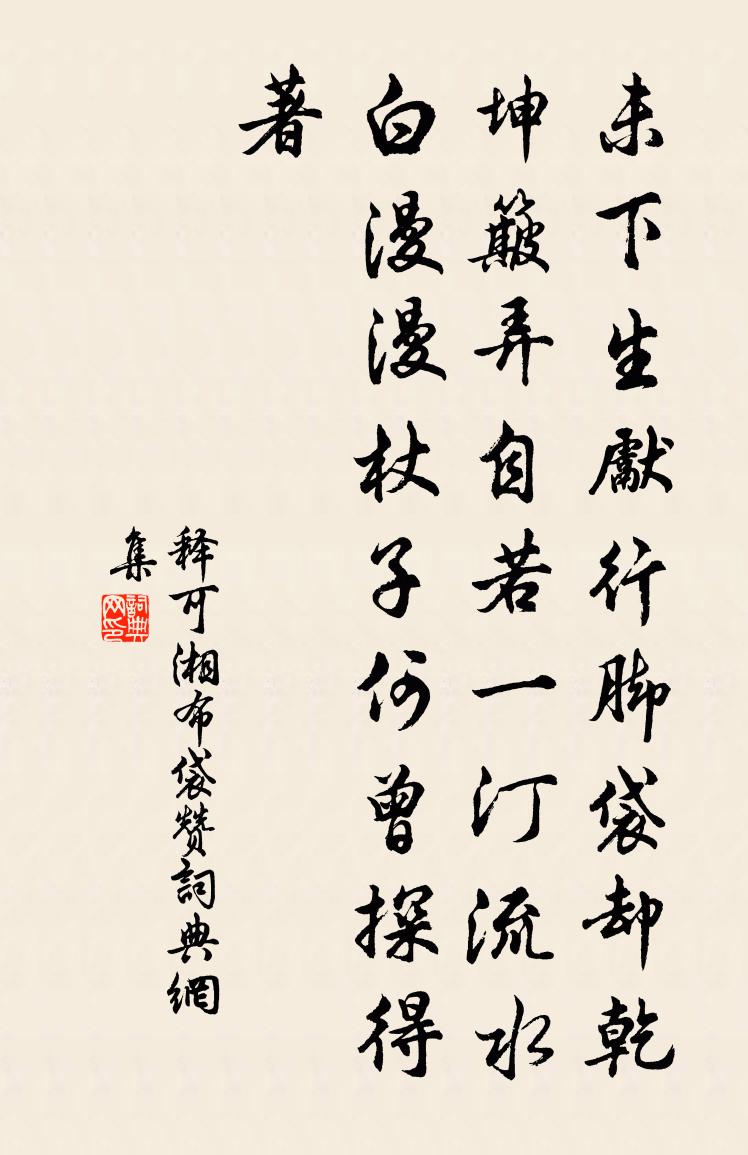 未下生獻行脚袋却乾
坤簸弄自若一汀流水
白漫漫杖子何曾探得
著
释可湘布袋贊詞典網
集
詞典网印